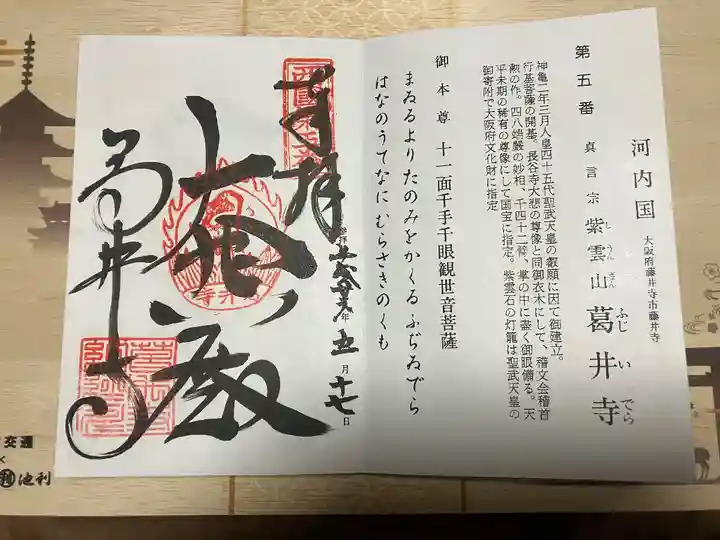 河内国 大阪府藤井寺市藤井寺
第五番 真言宗 紫雲山 葛井寺
しうんざん ふじいでら
神亀二年三月人皇四十五代聖武天皇の叡願に因て御建立。
行基菩薩の開基。長谷寺大悲の尊像と同御衣木にして、稽文会稽首
勲の作。四八端厳の妙相、千四十二臂、掌の中に蓥く御眼備る。天
平末期の稀有の尊像にして国宝に指定。紫雲石の灯籠は聖武天皇の
御寄附で大阪府文化財に指定
御本尊 十一面千手千眼観世音菩薩
まゐるよりたのみをかくるふぢゐでら
はなのうてなにむらさきのくも
奉拝
年五月十七日
大悲殿
葛井寺
交通
×
池利